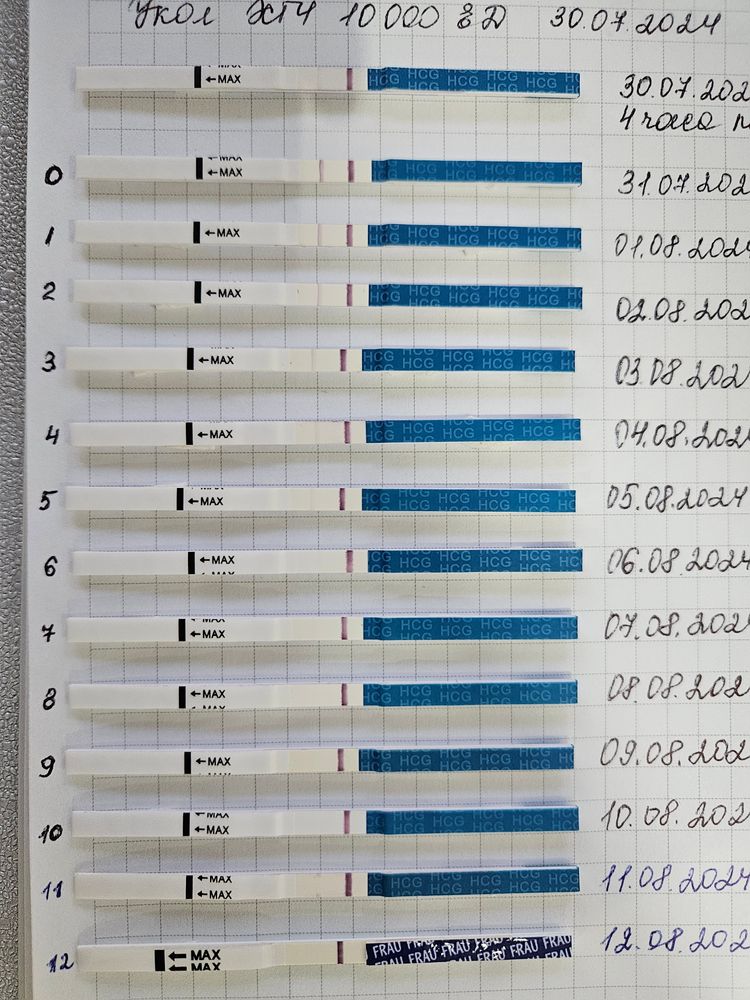 Укол ХГЧ 10 000 ЕД 30.07.2024
MAX
←MAX HCG HCG HCG HCG HCG
30.07.202
4 часа п
0 ←MAX
←MAX HCG HCG HCG HCG
31.07.202
1 ←MAX HCG HCG HCG HCG
01.08.2024
2 ←MAX HCG HCG HCG HCG
02.08.202
3 ←MAX HCG HCG HCG HCG HCG
03.08.202
4 ←MAX HCG HCG HCG HCG HCG
04.08.2024
5 ←MAX HCG HCG HCG HCG
05.08.2024
6 ←MAX HCG HCG HCG HCG HCG
06.08.2024
7 ←MAX
←MAX HCG HCG HCG HCG
07.08.2024
8 ←MAX HCG HCG HCG HCG
08.08.202
9 ←MAX HCG HCG HCG HCG HCG
09.08.202
10 ←MAX
←MAX HCG HCG HCG HCG
10.08.202
11 ←MAX
←MAX HCG HCG HCG HCG
11.08.2024
12 ←MAX FRAU FRAU FRAU FRAU
←MAX FRAU FRAU FRAU FRAU
12.08.202